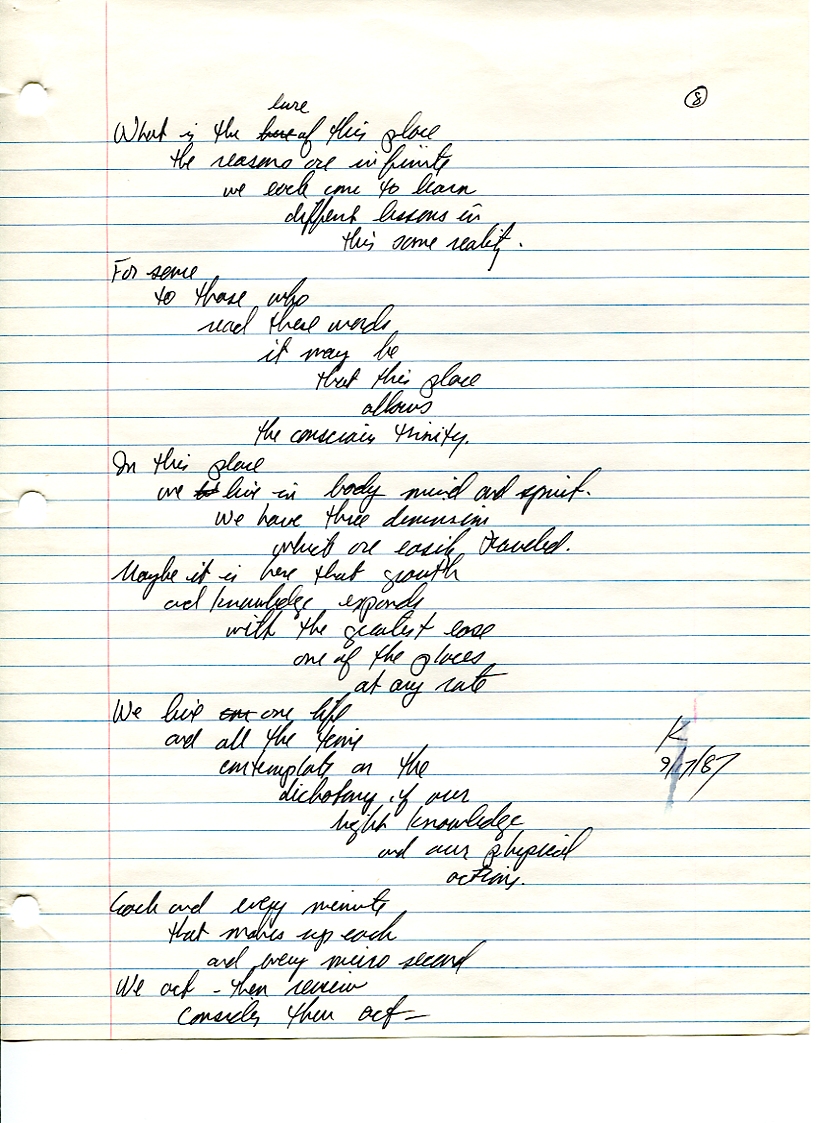 8
lure
What is the lure of this place
the reasons are infinite
we each come to learn
different lessons in
this same reality.
For some
to those who
read these words
it may be
that this place
allows
the conscious trinity.
In this place
we live in body mind and spirit.
We have three dimensions
which are easily traveled.
Maybe it is here that growth
and knowledge expands
with the greatest ease
one of the places
at any rate
We live one life
and all the time
contemplate on the
dichotomy if our
light knowledge
and our physical
actions.
K
9/17/87
Each and every minute
that makes up each
and every micro second
We act - then review
Consider then act -